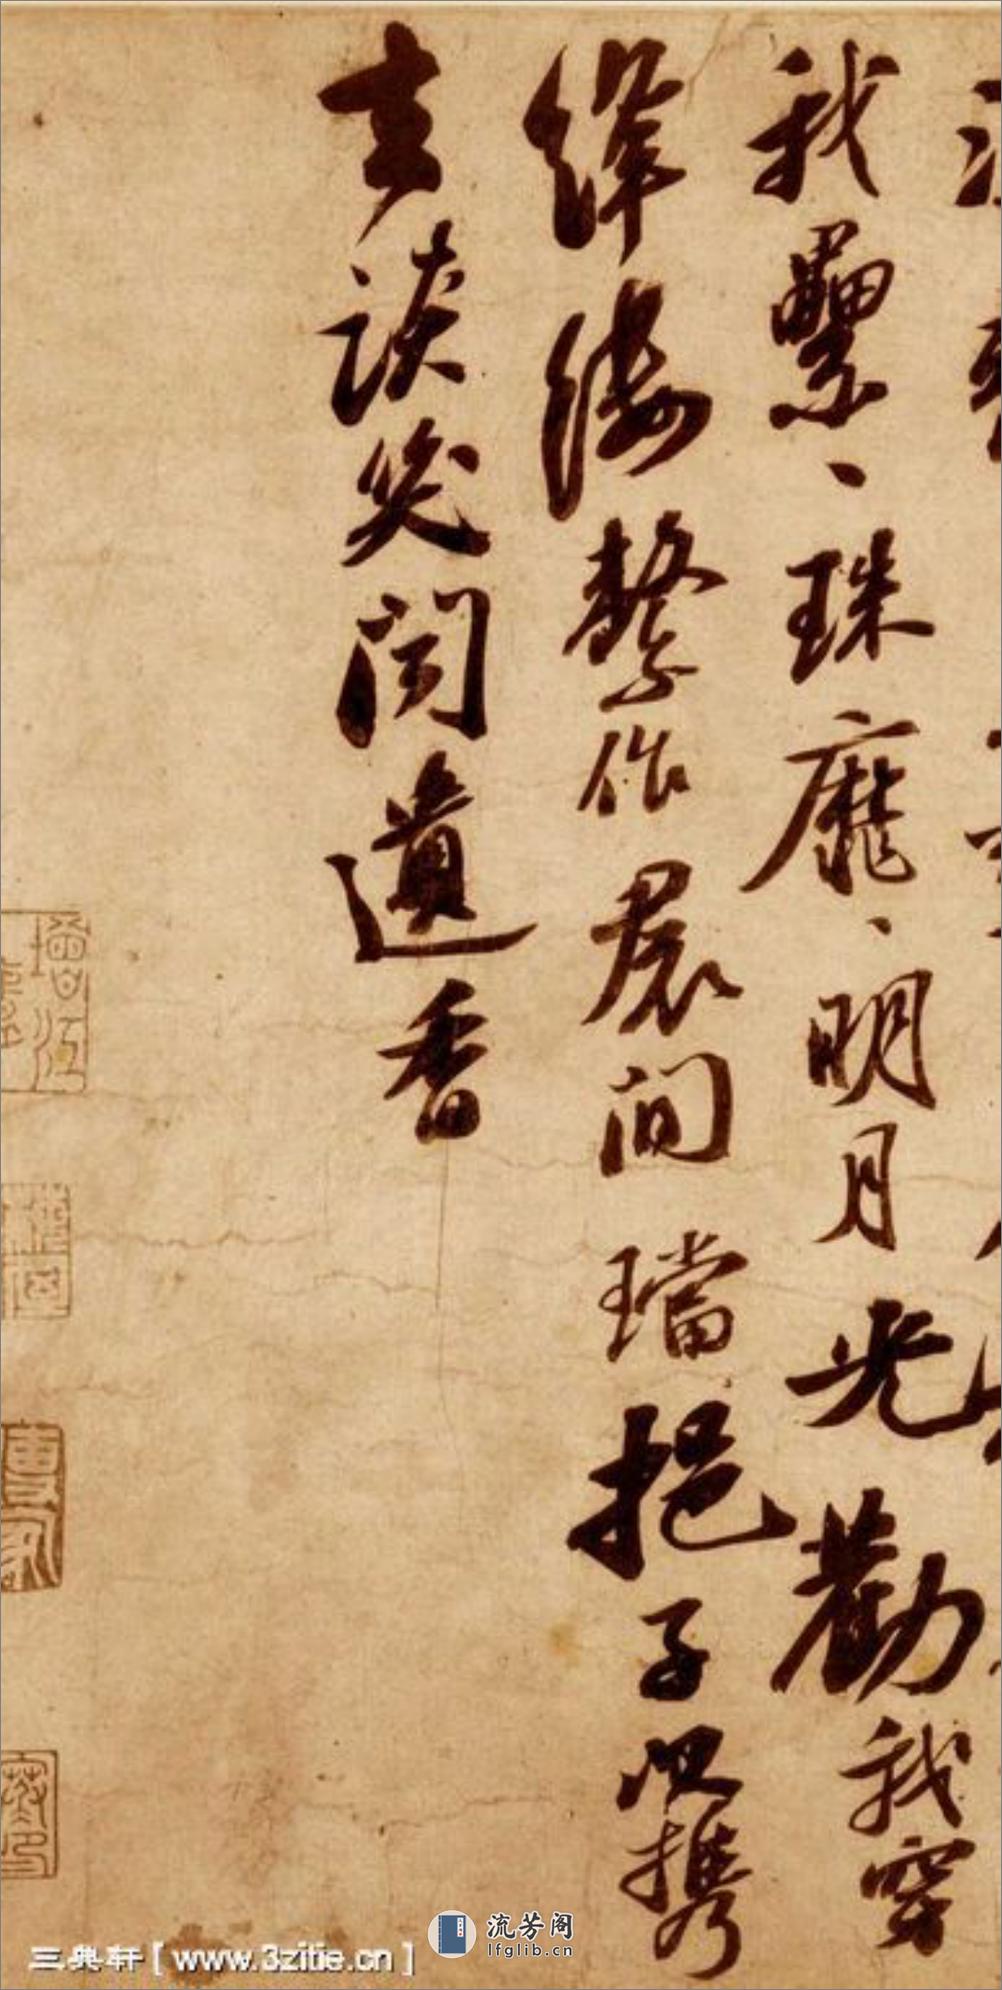 我累〻珠靡〻明月光勸我穿
絳縷繫作裙間璫挹子以攜
去談笑聞遺香
三典轩 [ www.3zitie.cn ]
流芳阁
lfglib.cn